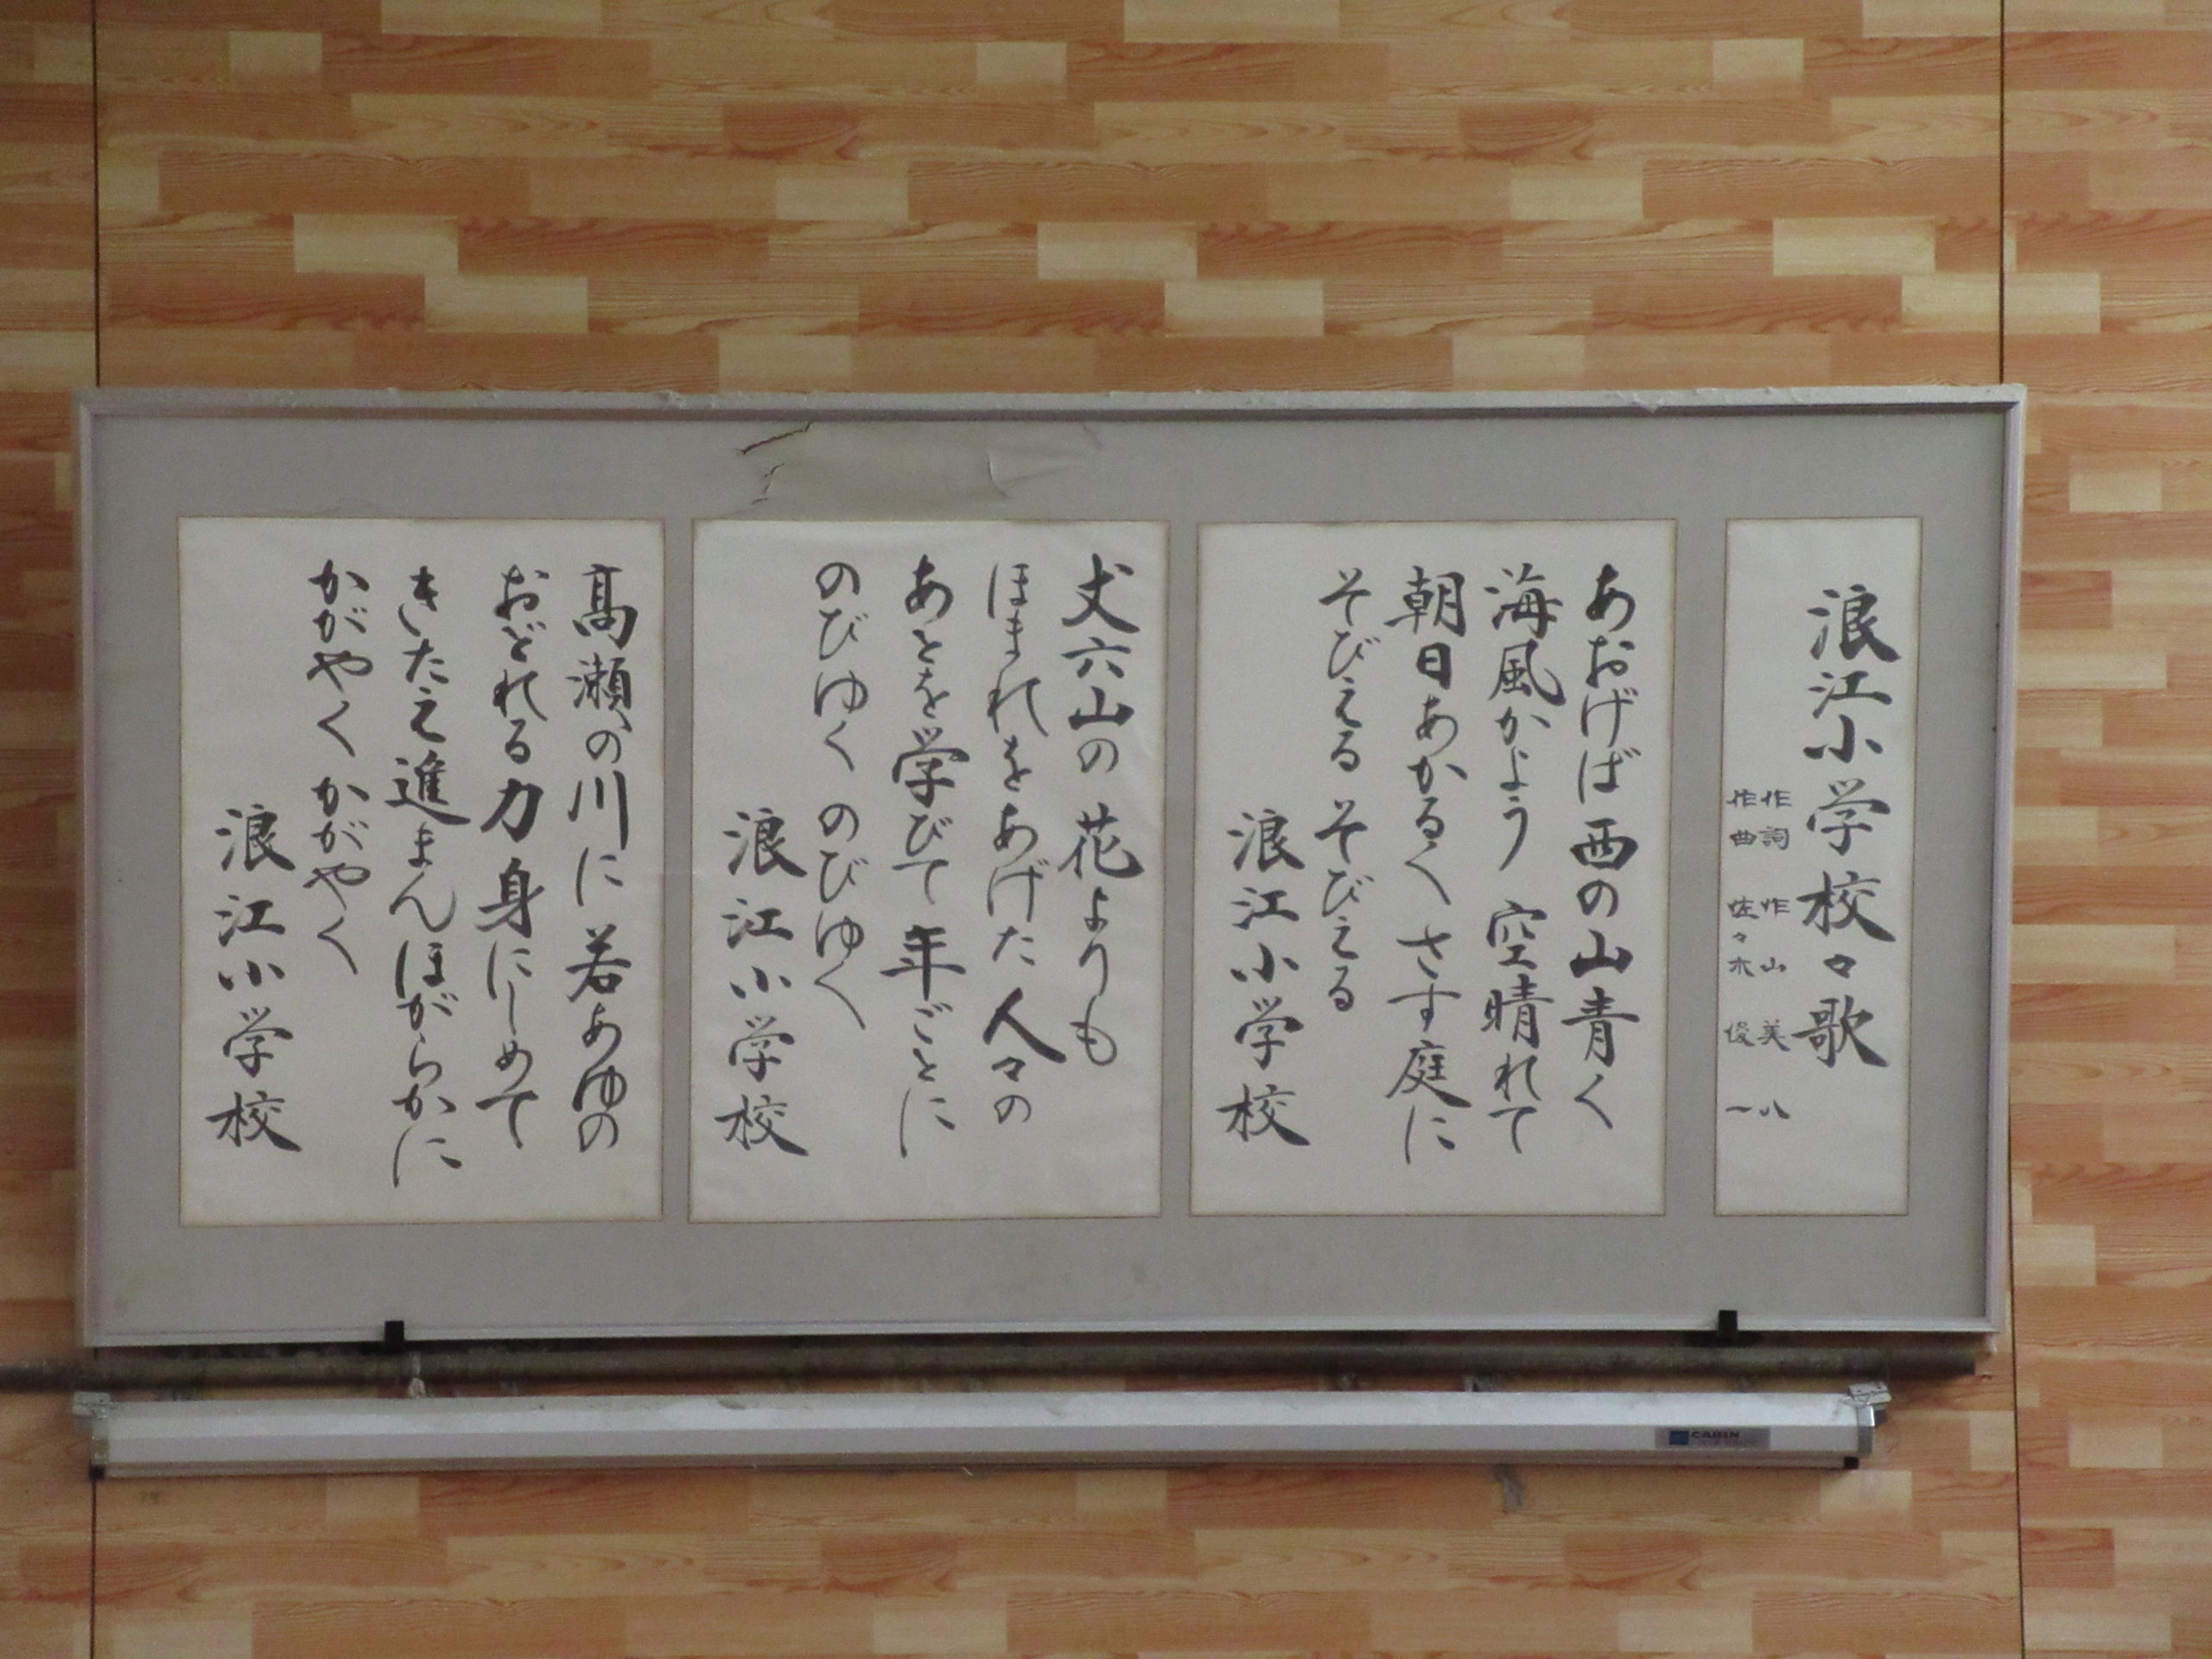 浪江小学校々歌
作詞 作山美八
作曲 佐々木俊一
あおげば西の山青く
海風かよう 空晴れて
朝日あかるくさす庭に
そびえる そびえる
浪江小学校
丈六山の花よりも
ほまれをあげた人々の
あとを学びて年ごとに
のびゆく のびゆく
浪江小学校
高瀬の川に若あゆの
おどれる力身にしめて
きたえ進まんほがらかに
かがやく かがやく
浪江小学校
CABIN